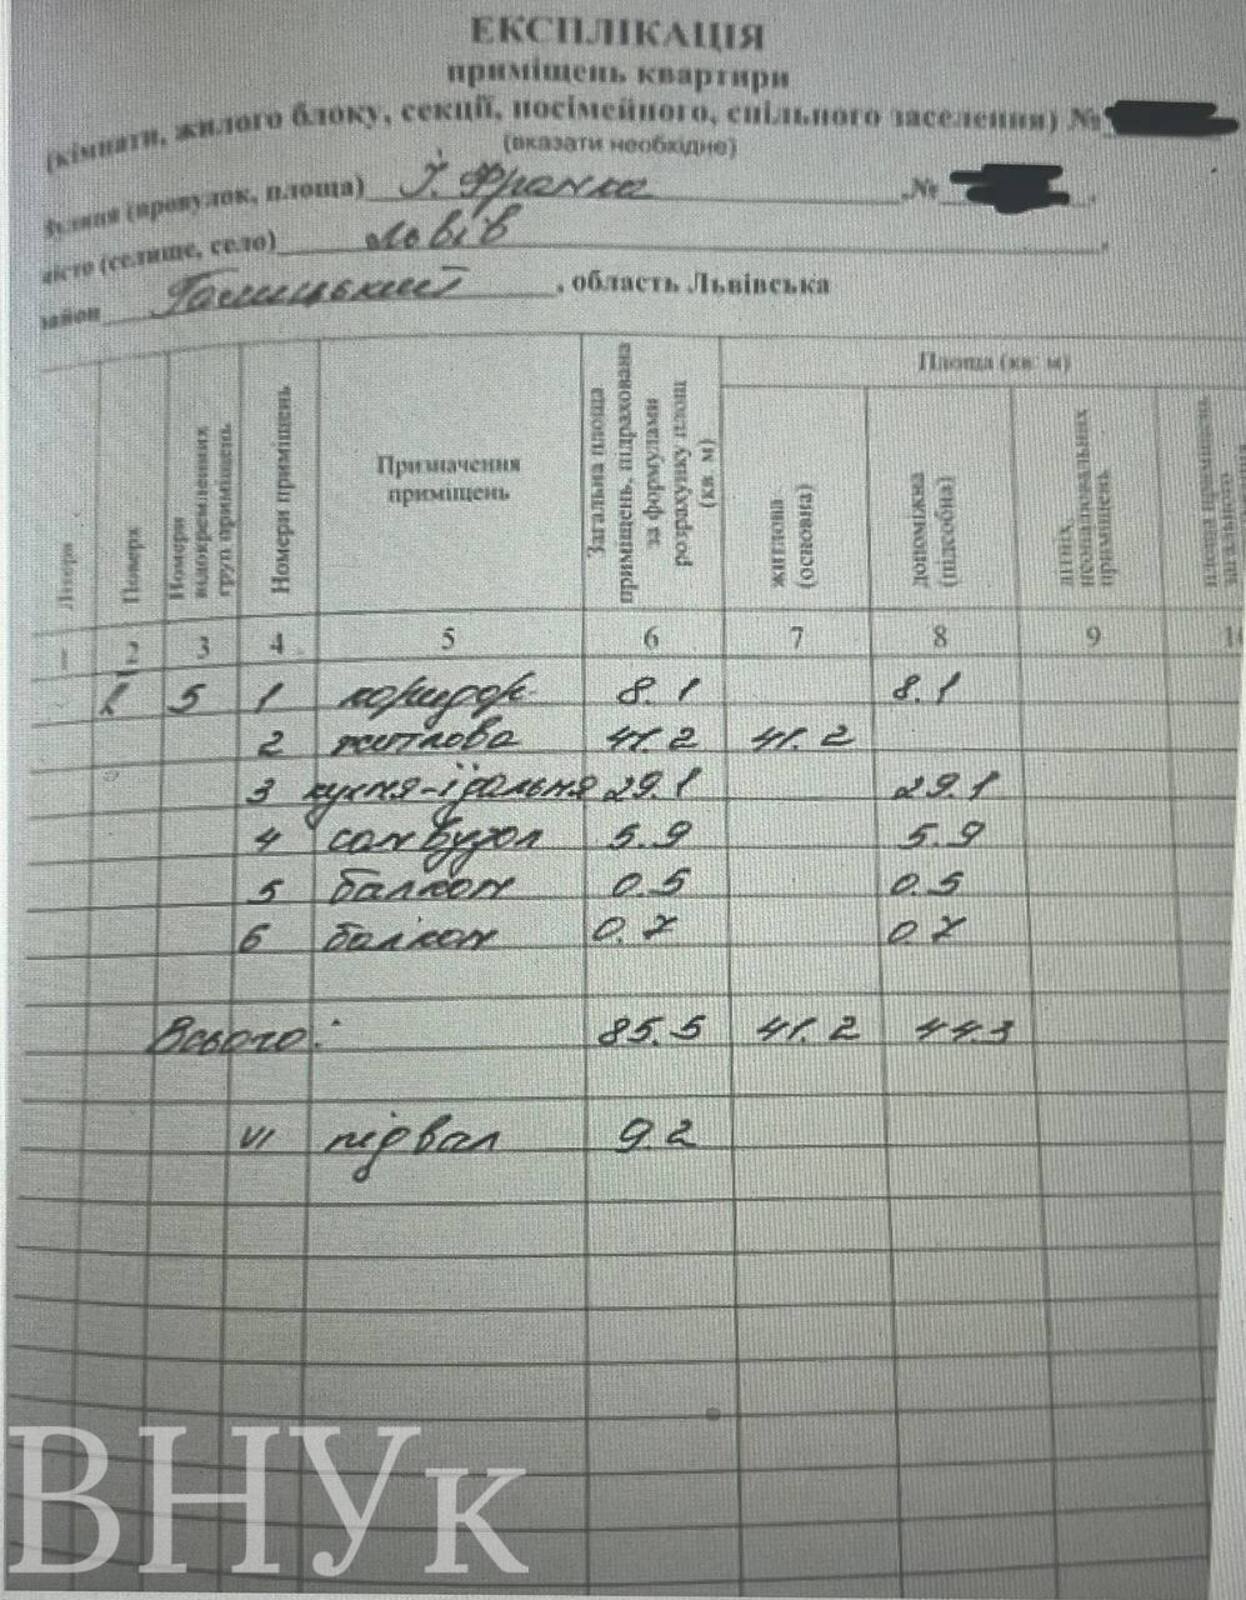 ЕКСПЛІКАЦІЯ
приміщень квартири
(кімнати, жилого блоку, секції, посімейного, спільного заселення) №
(вказати необхідне)
вулиця (провулок, площа) І. Франка , №
місто (селище, село) Львів ,
район Галицький , область Львівська
Літера
Поверх
Номери відокремлених груп приміщень
Номери приміщень
Призначення приміщень
Загальна площа приміщень, підрахована за формулами розрахунку площ (кв. м)
Площа (кв. м)
житлова (основна)
допоміжна (підсобна)
літніх неопалювальних приміщень
площа приміщень загального
1 2 3 4 5 6 7 8 9 10
5 1 коридор 8.1 8.1
2 житлова 41.2 41.2
3 кухня-їдальня 29.1 29.1
4 санвузол 5.9 5.9
5 балкон 0.5 0.5
6 балкон 0.7 0.7
Всього: 85.5 41.2 44.3
VI підвал 9.2
ВНУк